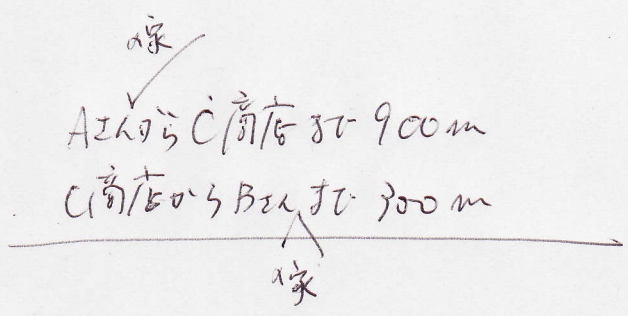 の家
Aさんから C商店まで 900m
C商店から Bさんまで 300m
の家